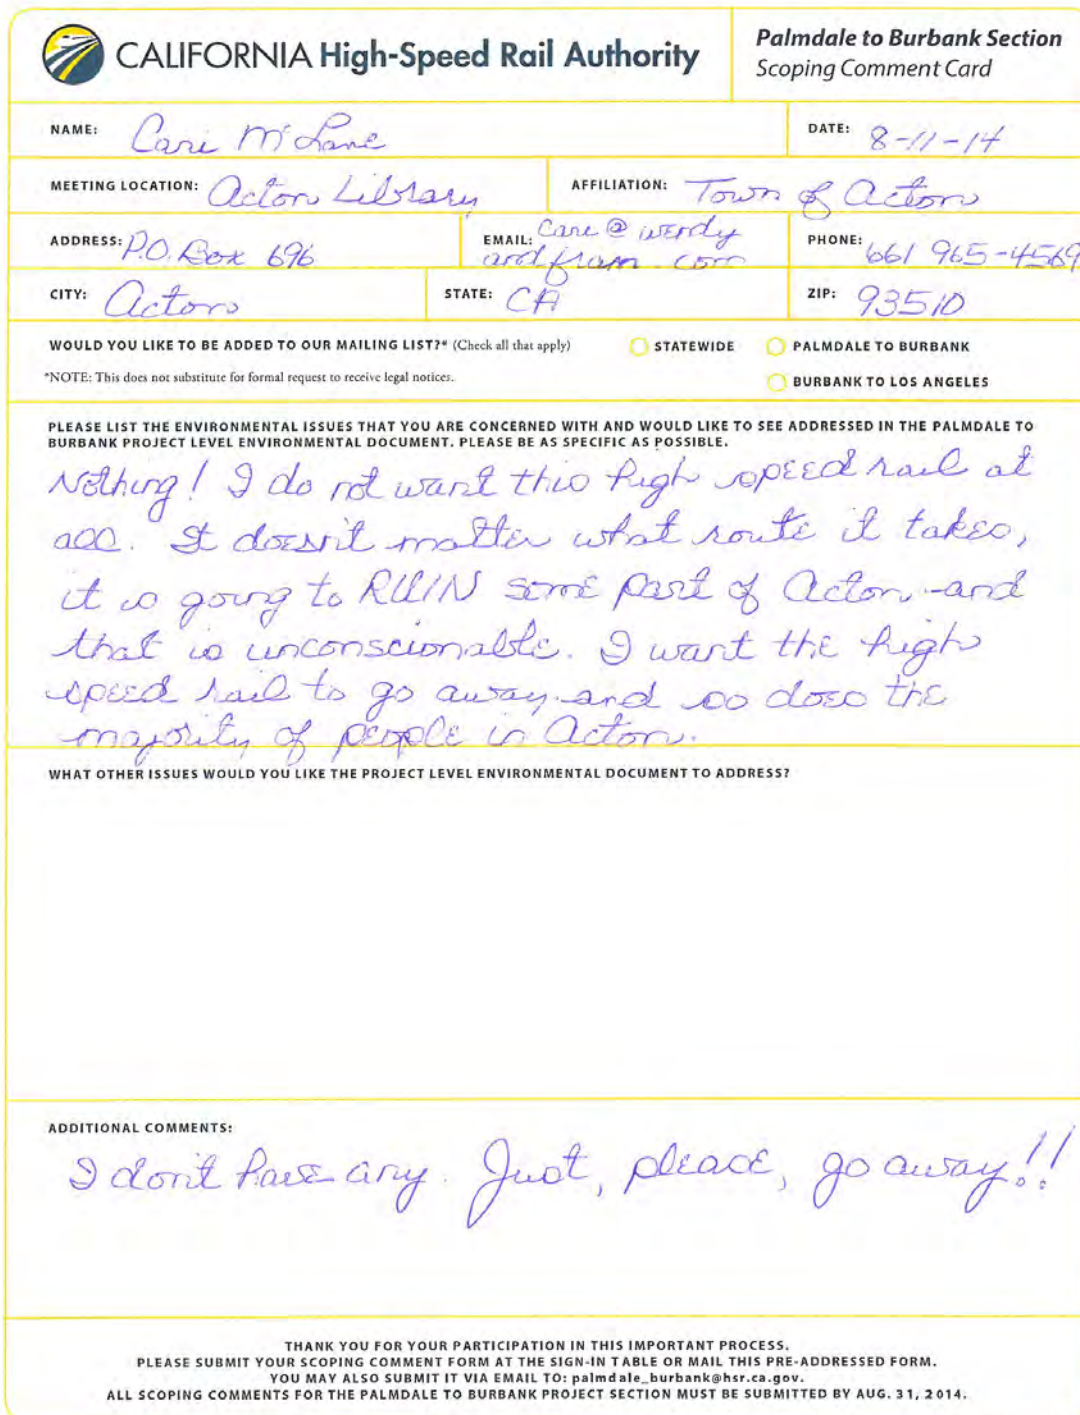 CALIFORNIA High-Speed Rail Authority
Palmdale to Burbank Section
Scoping Comment Card
NAME: Cari McLane
DATE: 8-11-14
MEETING LOCATION: Acton Library
AFFILIATION: Town of Acton
ADDRESS: P.O. Box 696
EMAIL: @
PHONE: 661 965-4569
CITY: Acton
STATE: CA
ZIP: 93510
WOULD YOU LIKE TO BE ADDED TO OUR MAILING LIST?* (Check all that apply)
STATEWIDE
PALMDALE TO BURBANK
*NOTE: This does not substitute for formal request to receive legal notices.
BURBANK TO LOS ANGELES
PLEASE LIST THE ENVIRONMENTAL ISSUES THAT YOU ARE CONCERNED WITH AND WOULD LIKE TO SEE ADDRESSED IN THE PALMDALE TO
BURBANK PROJECT LEVEL ENVIRONMENTAL DOCUMENT. PLEASE BE AS SPECIFIC AS POSSIBLE.
Nothing! I do not want this high speed rail at
all. It doesn't matter what route it takes,
it is going to RUIN some part of Acton and
that is unconscionable. I want the high
speed rail to go away and so does the
majority of people in Acton.
WHAT OTHER ISSUES WOULD YOU LIKE THE PROJECT LEVEL ENVIRONMENTAL DOCUMENT TO ADDRESS?
ADDITIONAL COMMENTS:
I don't have any. Just, please, go away!!
THANK YOU FOR YOUR PARTICIPATION IN THIS IMPORTANT PROCESS.
PLEASE SUBMIT YOUR SCOPING COMMENT FORM AT THE SIGN-IN TABLE OR MAIL THIS PRE-ADDRESSED FORM.
YOU MAY ALSO SUBMIT IT VIA EMAIL TO: palmdale_burbank@hsr.ca.gov.
ALL SCOPING COMMENTS FOR THE PALMDALE TO BURBANK PROJECT SECTION MUST BE SUBMITTED BY AUG. 31, 2014.